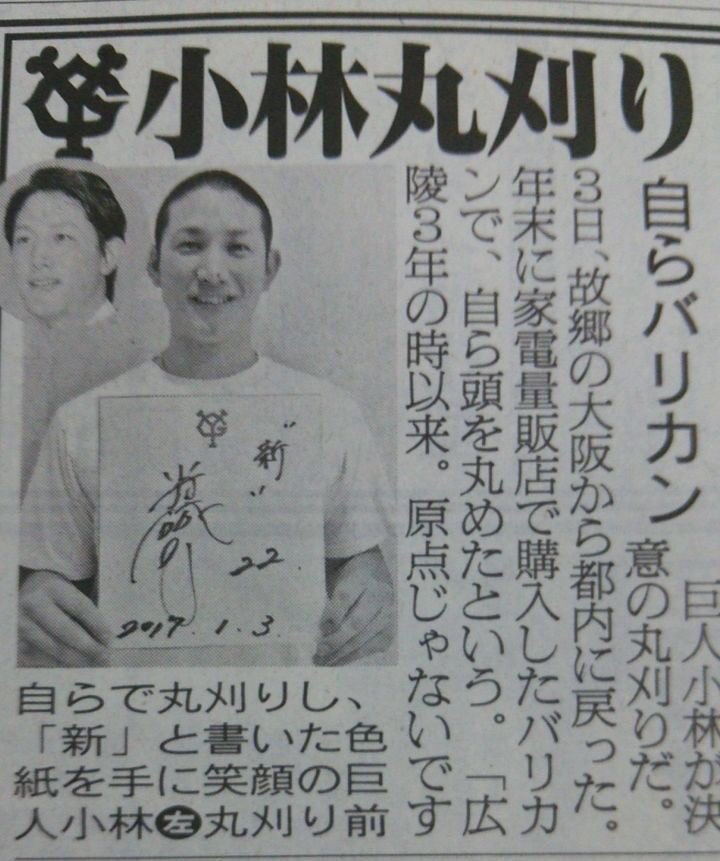 小林丸刈り
自らバリカン
巨人小林が決
意の丸刈りだ。
3日、故郷の大阪から都内に戻った。
年末に家電量販店で購入したバリカ
ンで、自ら頭を丸めたという。「広
陵3年の時以来。原点じゃないです
"新"
22.
2017.1.3.
自らで丸刈りし、
「新」と書いた色
紙を手に笑顔の巨
人小林左丸刈り前